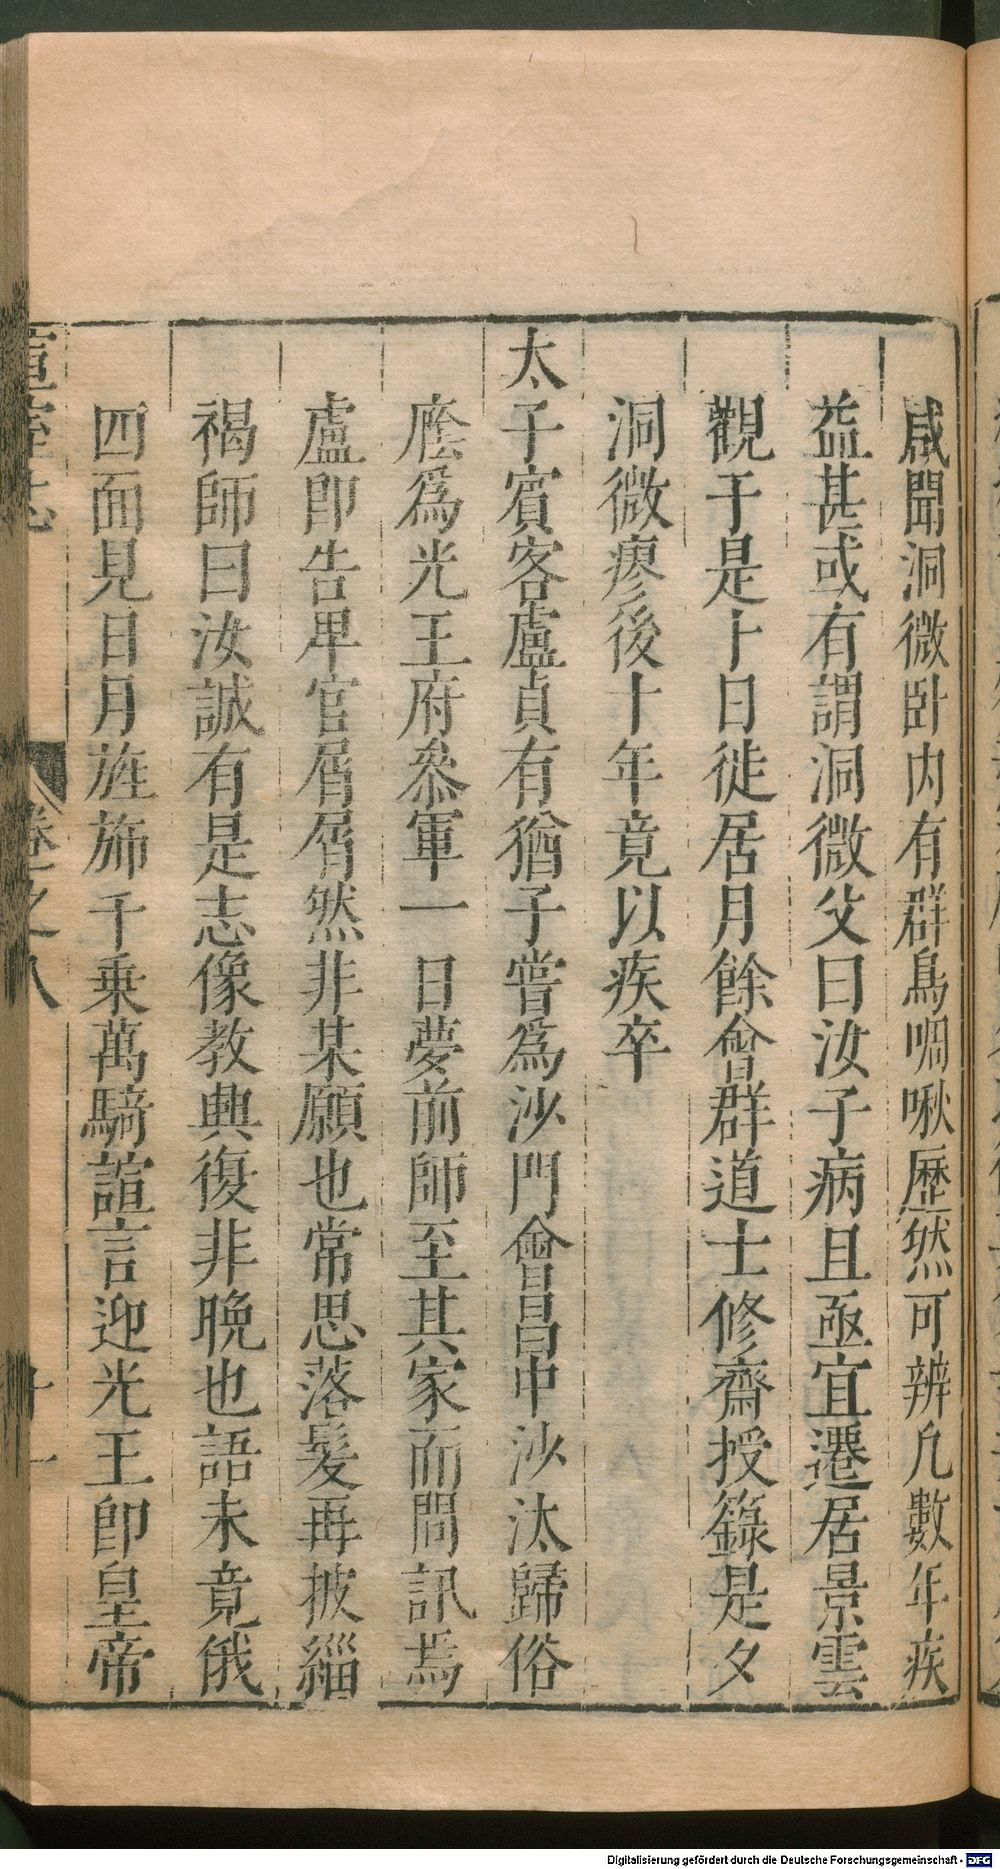 咸聞洞微卧内有群鳥啁啾歷然可辨凡數年疾
益甚或有謂洞微父曰汝子病且亟宜遷居景雲
觀于是卜日徙居月餘會群道士修齋授籙是夕
洞微瘳後十年竟以疾卒
太子賓客盧貞有猶子嘗爲沙門會昌中沙汰歸俗
廕爲光王府叅軍一日夢前師至其家而問訊焉
盧卽告卑官屑屑然非某願也常思落髮再披緇
褐師曰汝誠有是志像教興復非晚也語未竟俄
四面見日月旌斾千乗萬騎諠言迎光王卽皇帝
宣室志 卷之八 十一
Digitalisierung gefördert durch die Deutsche Forschungsgemeinschaft - DFG